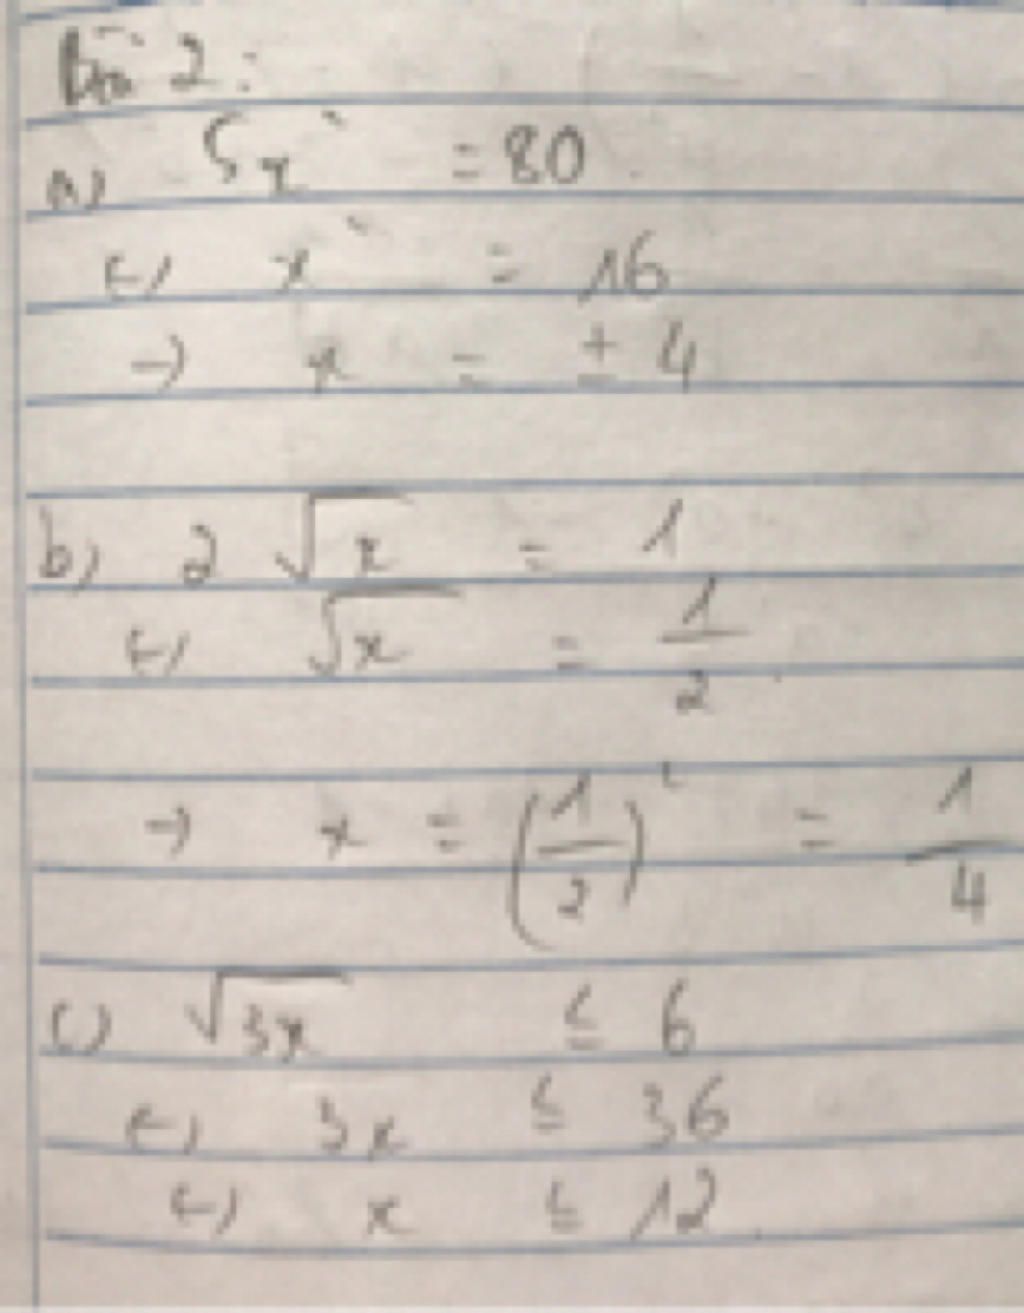 Bài 2:
a) 5x² = 80
⇔ x² = 16
→ x = ± 4
b) 2√x = 1
⇔ √x = 1/2
→ x = (1/2)² = 1/4
c) √3x ≤ 6
⇔ 3x ≤ 36
⇔ x ≤ 12